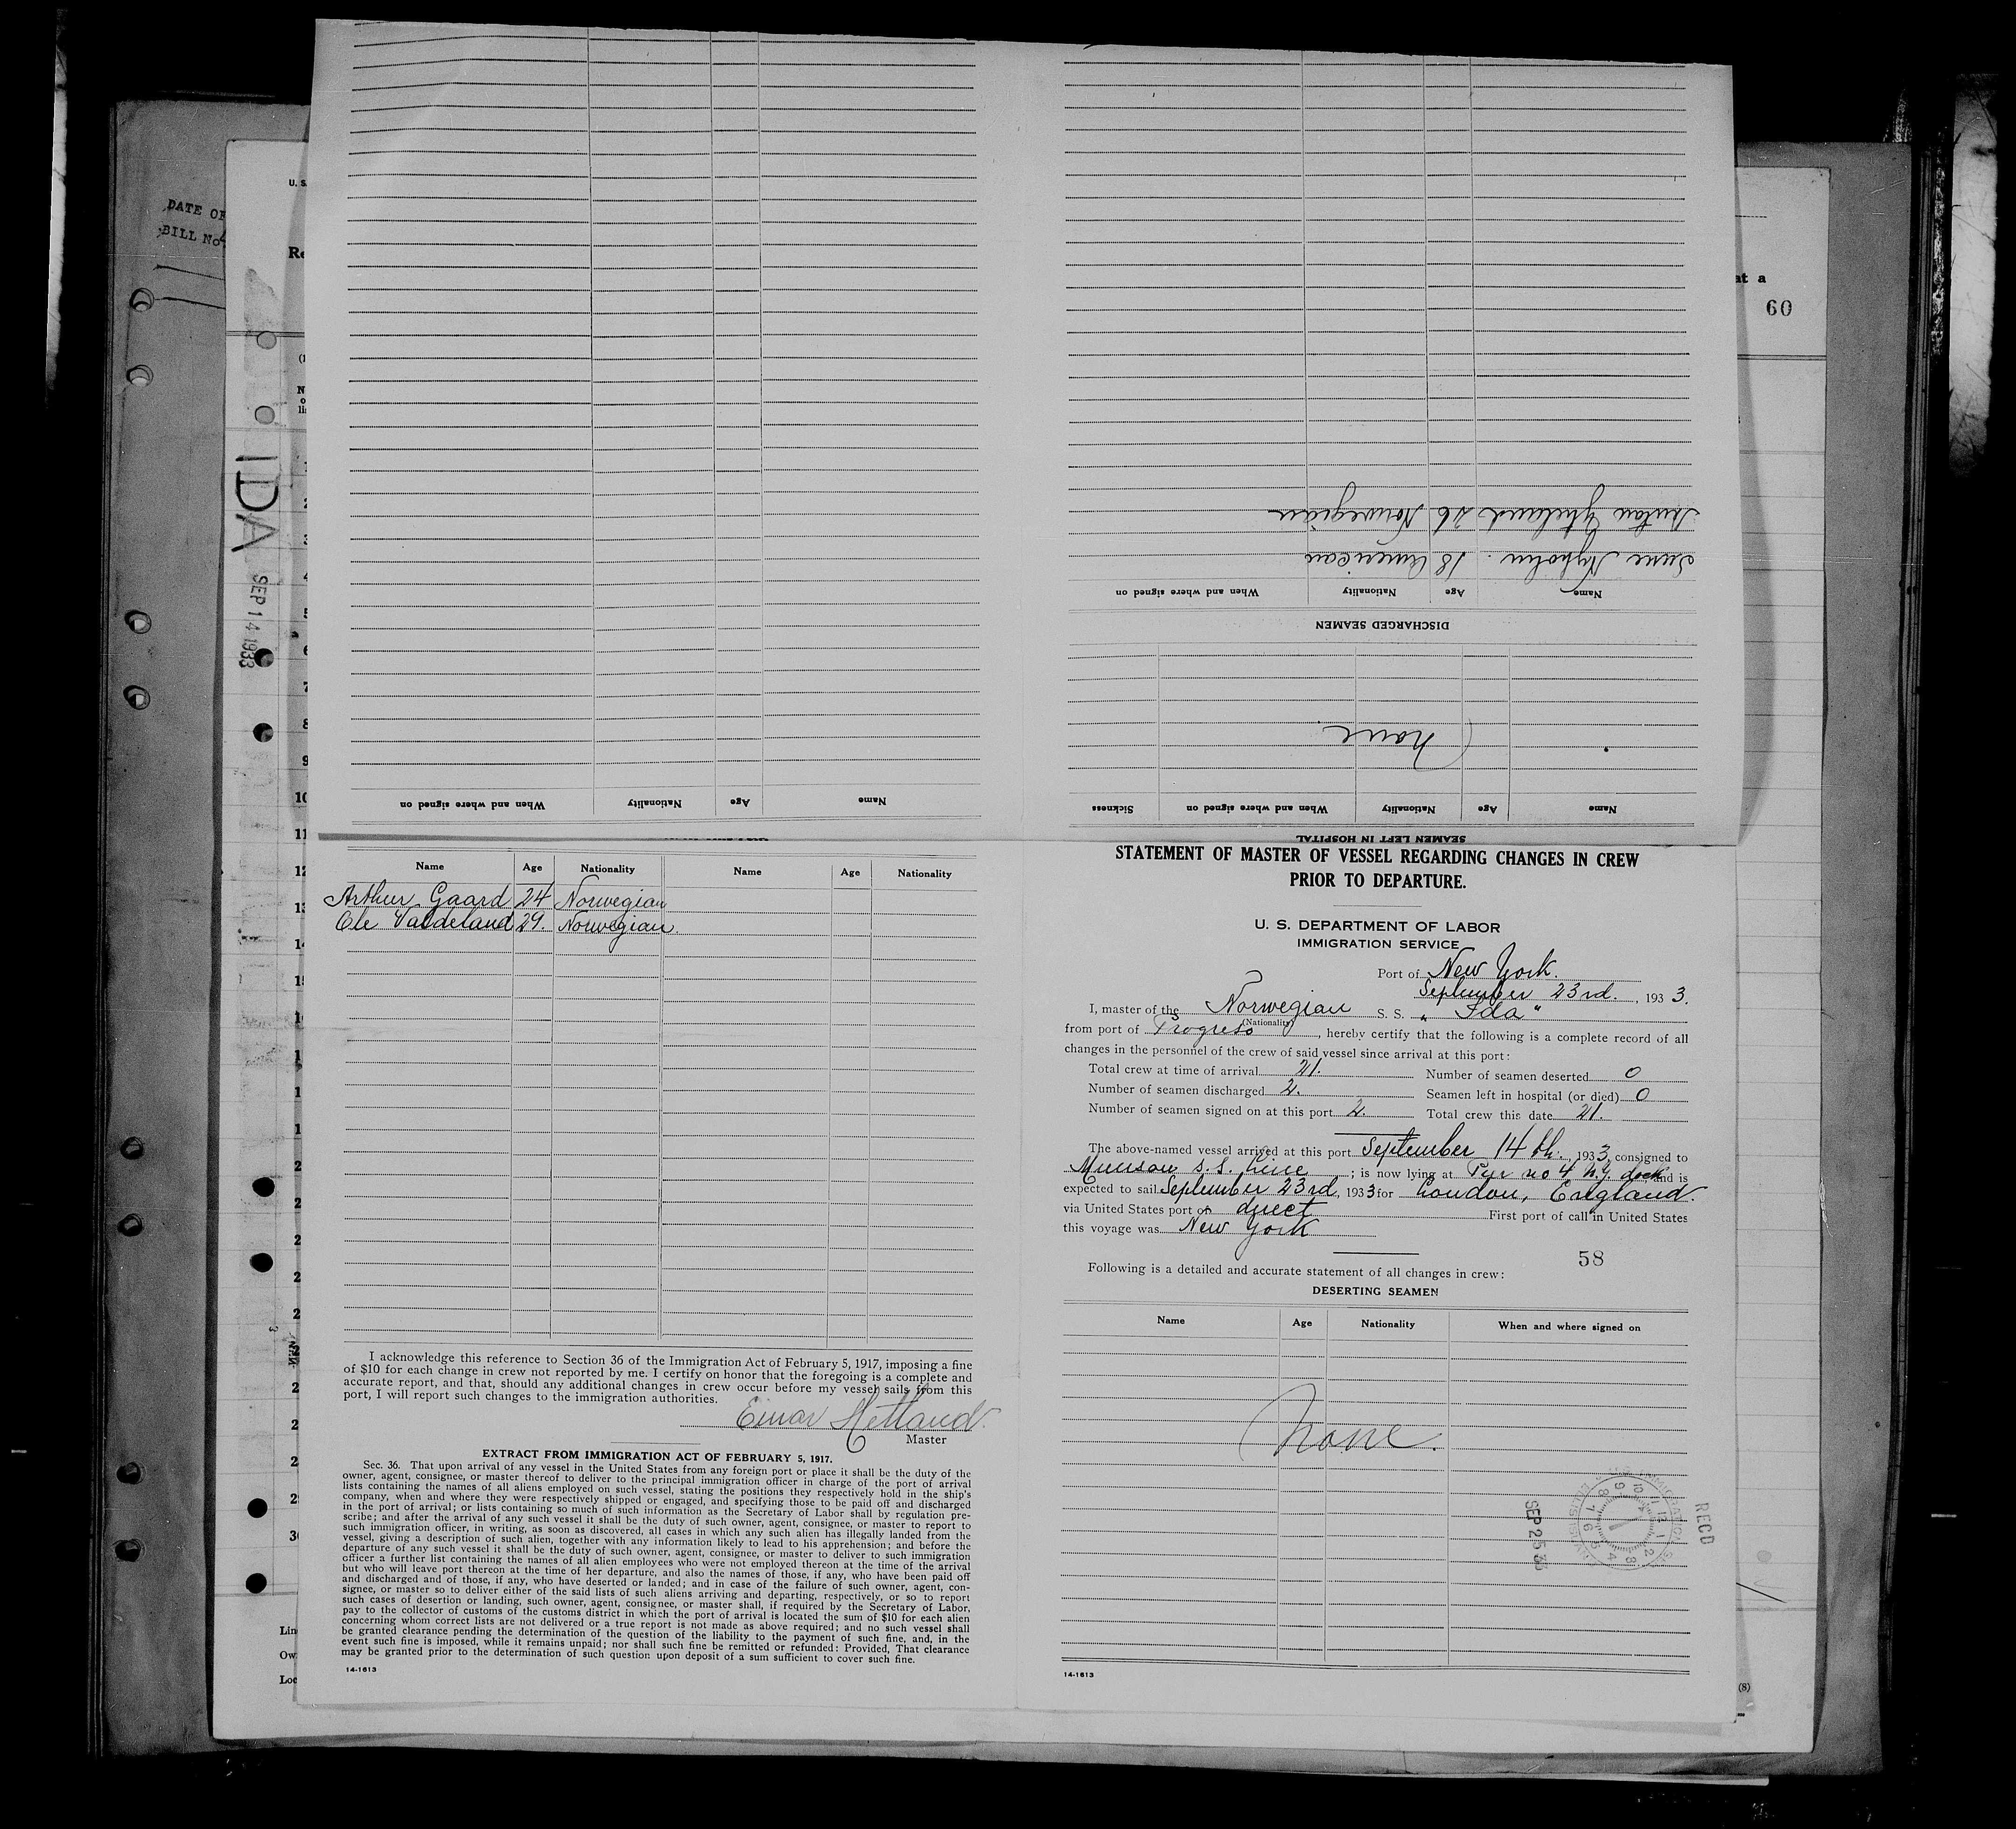 DATE OF
BILL No
U. S.
IDA
SEP 14 1933
at a
60
SEAMEN LEFT IN HOSPITAL
Name Age Nationality When and where signed on Sickness
none
DISCHARGED SEAMEN
Name Age Nationality When and where signed on
18 American
26 Norwegian
Name Age Nationality When and where signed on
Name Age Nationality Name Age Nationality
Arthur Gaard 24 Norwegian
Ole Valdeland 29. Norwegian.
I acknowledge this reference to Section 36 of the Immigration Act of February 5, 1917, imposing a fine
of $10 for each change in crew not reported by me. I certify on honor that the foregoing is a complete and
accurate report, and that, should any additional changes in crew occur before my vessel sails from this
port, I will report such changes to the immigration authorities.
Einar Hetland.
Master
EXTRACT FROM IMMIGRATION ACT OF FEBRUARY 5, 1917.
Sec. 36. That upon arrival of any vessel in the United States from any foreign port or place it shall be the duty of the
owner, agent, consignee, or master thereof to deliver to the principal immigration officer in charge of the port of arrival
lists containing the names of all aliens employed on such vessel, stating the positions they respectively hold in the ship's
company, when and where they were respectively shipped or engaged, and specifying those to be paid off and discharged
in the port of arrival; or lists containing so much of such information as the Secretary of Labor shall by regulation pre-
scribe; and after the arrival of any such vessel it shall be the duty of such owner, agent, consignee, or master to report to
such immigration officer, in writing, as soon as discovered, all cases in which any such alien has illegally landed from the
vessel, giving a description of such alien, together with any information likely to lead to his apprehension; and before the
departure of any such vessel it shall be the duty of such owner, agent, consignee, or master to deliver to such immigration
officer a further list containing the names of all alien employees who were not employed thereon at the time of the arrival
but who will leave port thereon at the time of her departure, and also the names of those, if any, who have been paid off
and discharged and of those, if any, who have deserted or landed; and in case of the failure of such owner, agent, con-
signee, or master so to deliver either of the said lists of such aliens arriving and departing, respectively, or so to report
such cases of desertion or landing, such owner, agent, consignee, or master shall, if required by the Secretary of Labor,
pay to the collector of customs of the customs district in which the port of arrival is located the sum of $10 for each alien
concerning whom correct lists are not delivered or a true report is not made as above required; and no such vessel shall
be granted clearance pending the determination of the question of the liability to the payment of such fine, and, in the
event such fine is imposed, while it remains unpaid; nor shall such fine be remitted or refunded: Provided, That clearance
may be granted prior to the determination of such question upon deposit of a sum sufficient to cover such fine.
14-1613
STATEMENT OF MASTER OF VESSEL REGARDING CHANGES IN CREW
PRIOR TO DEPARTURE.
U. S. DEPARTMENT OF LABOR
IMMIGRATION SERVICE
Port of New York.
September 23rd. , 193 3.
I, master of the Norwegian S. S. „ Ida "
(Nationality)
from port of Progreso , hereby certify that the following is a complete record of all
changes in the personnel of the crew of said vessel since arrival at this port:
Total crew at time of arrival 21. Number of seamen deserted 0
Number of seamen discharged 2. Seamen left in hospital (or died) 0
Number of seamen signed on at this port 2. Total crew this date 21.
The above-named vessel arrived at this port September 14 th. , 193 3, consigned to
Munson S.S. Line ; is now lying at Pier no 4 N.Y. dock and is
expected to sail September 23rd, 193 3 for London, England.
via United States port or direct First port of call in United States
this voyage was New York
58
Following is a detailed and accurate statement of all changes in crew:
DESERTING SEAMEN
Name Age Nationality When and where signed on
None.
SEP 25 33
RECD
14-1613
(8)